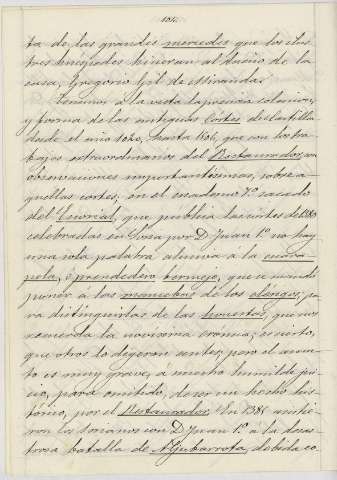 104.
ta de las grandes mercedes que los ilus-
tres huéspedes hicieran al dueño de la
casa, Gregorio Gil de Miranda.
Tenemos á la vista la
y forma de las antiguas Cortes de Castilla
desde el año 1020, hasta que con los tra-
bajos extraordinarios del Restaurador, con
observaciones importantísimas, sobre a-
quellas cortes; en el cuaderno 7º sacado
del Escorial, que publica las cortes de 1380
celebradas en Soria por D. Juan 1º no hay
una sola palabra alusiva á la
prendedero bermejo, que se mandó
poner á las mancebas de los clérigos, pa-
ra distinguirlas de las honestas, que nos
recuerda la novísima crónica; es cierto,
que otros lo dijeron antes, pero el asun-
to es muy grave, á nuestro humilde jui-
cio, para omitido, de ser un hecho his-
tórico, por el Restaurador. En 1385 asistie-
ron los sorianos con D. Juan 1º á la desas-
trosa batalla de Aljubarrota, debida co-